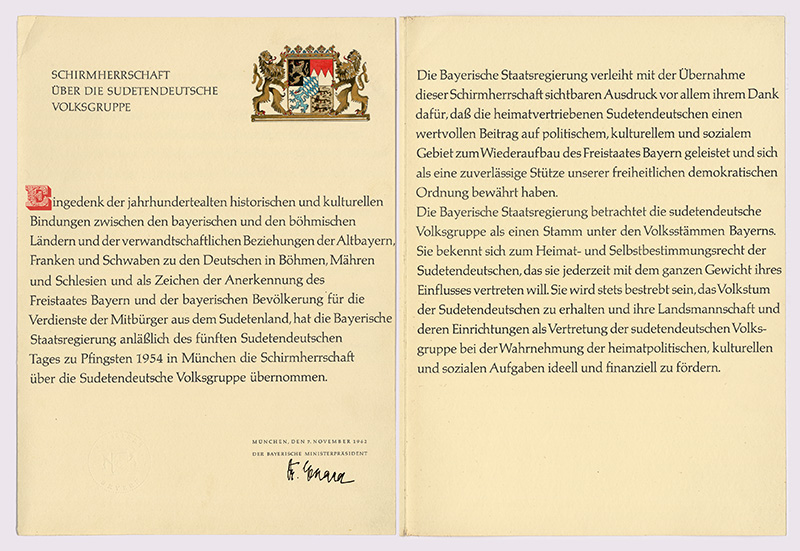 SCHIRMHERRSCHAFT
ÜBER DIE SUDETENDEUTSCHE
VOLKSGRUPPE
Eingedenk der jahrhundertealten historischen und kulturellen
Bindungen zwischen den bayerischen und den böhmischen
Ländern und der verwandtschaftlichen Beziehungen der Altbayern,
Franken und Schwaben zu den Deutschen in Böhmen, Mähren
und Schlesien und als Zeichen der Anerkennung des
Freistaates Bayern und der bayerischen Bevölkerung für die
Verdienste der Mitbürger aus dem Sudetenland, hat die Bayerische
Staatsregierung anläßlich des fünften Sudetendeutschen
Tages zu Pfingsten 1954 in München die Schirmherrschaft
über die Sudetendeutsche Volksgruppe übernommen.
MÜNCHEN, DEN 7. NOVEMBER 1962
DER BAYERISCHE MINISTERPRÄSIDENT
Die Bayerische Staatsregierung verleiht mit der Übernahme
dieser Schirmherrschaft sichtbaren Ausdruck vor allem ihrem Dank
dafür, daß die heimatvertriebenen Sudetendeutschen einen
wertvollen Beitrag auf politischem, kulturellem und sozialem
Gebiet zum Wiederaufbau des Freistaates Bayern geleistet und sich
als eine zuverlässige Stütze unserer freiheitlichen demokratischen
Ordnung bewährt haben.
Die Bayerische Staatsregierung betrachtet die sudetendeutsche
Volksgruppe als einen Stamm unter den Volksstämmen Bayerns.
Sie bekennt sich zum Heimat- und Selbstbestimmungsrecht der
Sudetendeutschen, das sie jederzeit mit dem ganzen Gewicht ihres
Einflusses vertreten will. Sie wird stets bestrebt sein, das Volkstum
der Sudetendeutschen zu erhalten und ihre Landsmannschaft und
deren Einrichtungen als Vertretung der sudetendeutschen Volks-
gruppe bei der Wahrnehmung der heimatpolitischen, kulturellen
und sozialen Aufgaben ideell und finanziell zu fördern.